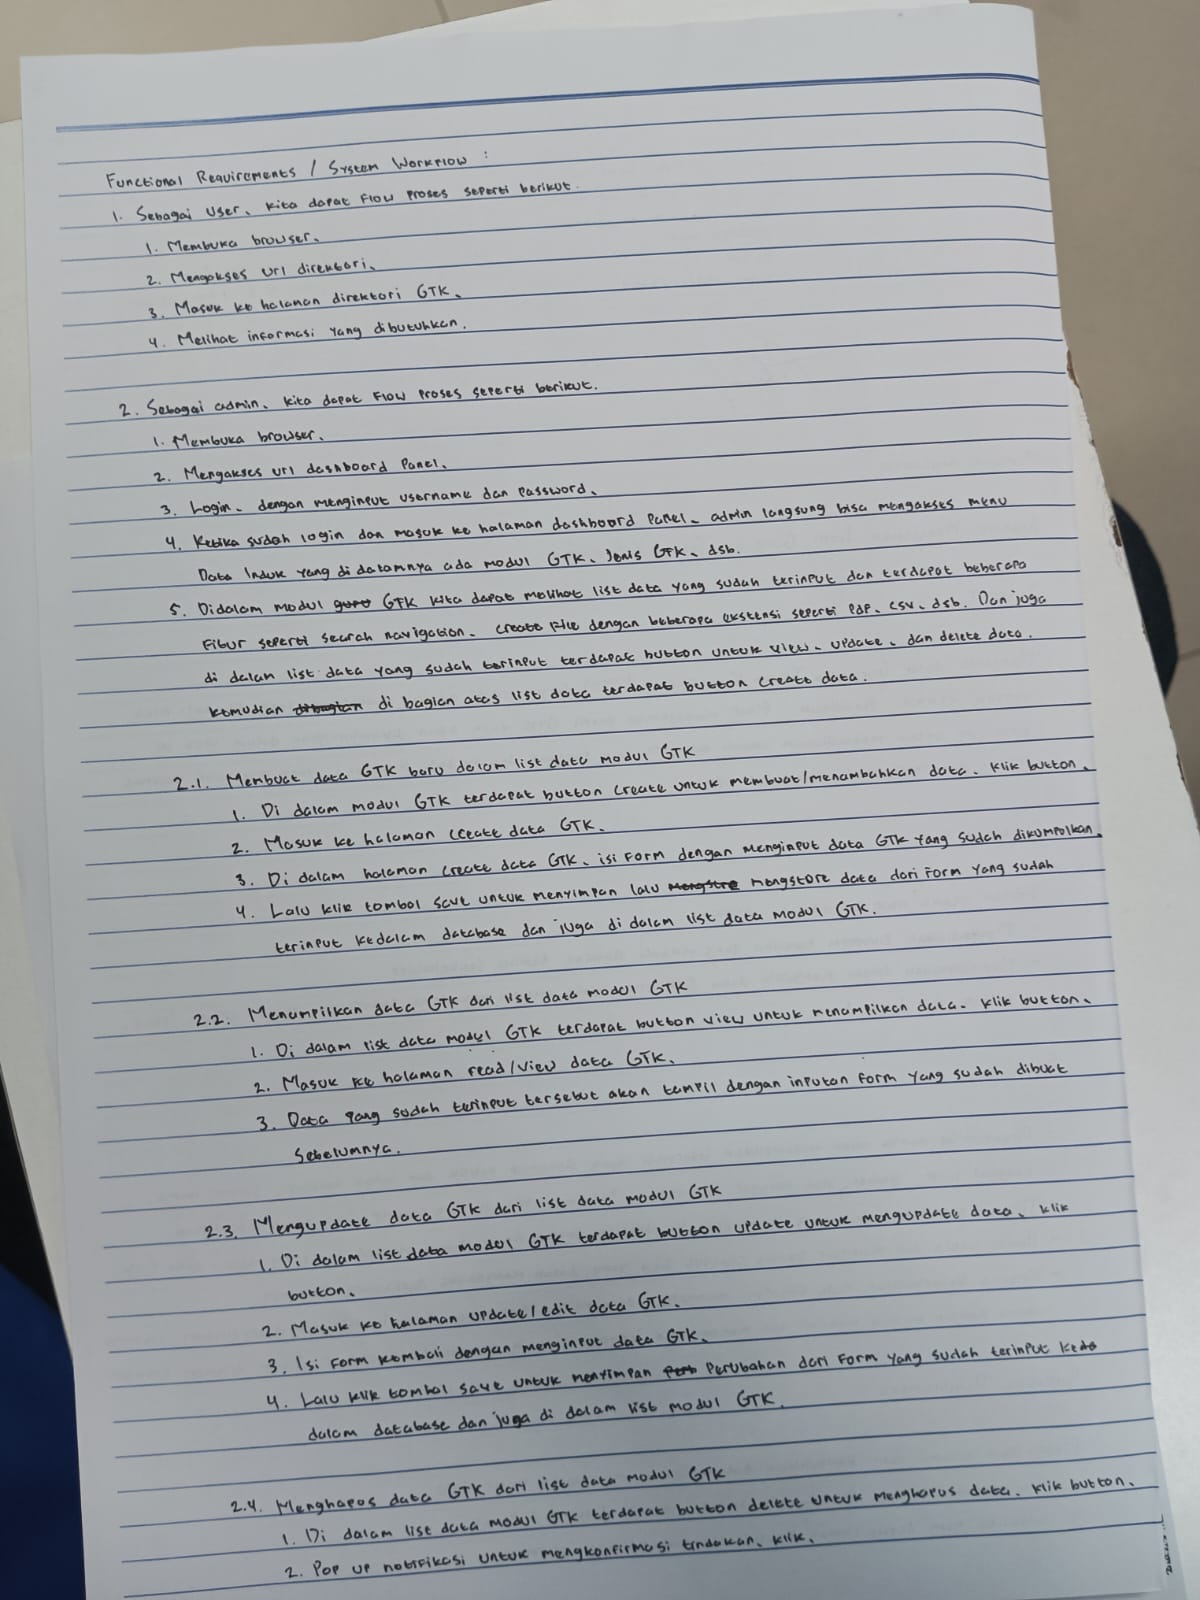 Functional Requirements / System Workflow :
1. Sebagai User, kita dapat Flow proses seperti berikut.
1. Membuka browser,
2. Mengakses url direktori,
3. Masuk ke halaman direktori GTK,
4. Melihat informasi yang dibutuhkan.
2. Sebagai admin, kita dapat Flow proses seperti berikut.
1. Membuka browser,
2. Mengakses url dashboard panel,
3. Login, dengan menginput username dan password,
4. Ketika sudah login dan masuk ke halaman dashboard panel, admin langsung bisa mengakses menu
Data Induk yang di dalamnya ada modul GTK, Jenis GTK, dsb.
5. Didalam modul guru GTK kita dapat melihat list data yang sudah terinput dan terdapat beberapa
Fitur seperti search navigation, create file dengan beberapa ekstensi seperti pdf, csv, dsb. Dan juga
di dalam list data yang sudah terinput terdapat button untuk view, update, dan delete data.
kemudian dibagian di bagian atas list data terdapat button create data.
2.1. Membuat data GTK baru dalam list data modul GTK
1. Di dalam modul GTK terdapat button create untuk membuat/menambahkan data, klik button,
2. Masuk ke halaman create data GTK,
3. Di dalam halaman create data GTK, isi form dengan menginput data GTK yang sudah dikumpulkan,
4. Lalu klik tombol save untuk menyimpan lalu mengstore data dari form yang sudah
terinput kedalam database dan juga di dalam list data modul GTK.
2.2. Menampilkan data GTK dari list data modul GTK
1. Di dalam list data modul GTK terdapat button view untuk menampilkan data, klik button,
2. Masuk ke halaman read/view data GTK,
3. Data yang sudah terinput tersebut akan tampil dengan inputan form yang sudah dibuat
sebelumnya.
2.3. Mengupdate data GTK dari list data modul GTK
1. Di dalam list data modul GTK terdapat button update untuk mengupdate data, klik
button,
2. Masuk ke halaman update/edit data GTK,
3. Isi form kembali dengan menginput data GTK,
4. Lalu klik tombol save untuk menyimpan perubahan dari form yang sudah terinput ke
dalam database dan juga di dalam list modul GTK.
2.4. Menghapus data GTK dari list data modul GTK
1. Di dalam list data modul GTK terdapat button delete untuk menghapus data, klik button,
2. Pop up notifikasi untuk mengkonfirmasi tindakan, klik,